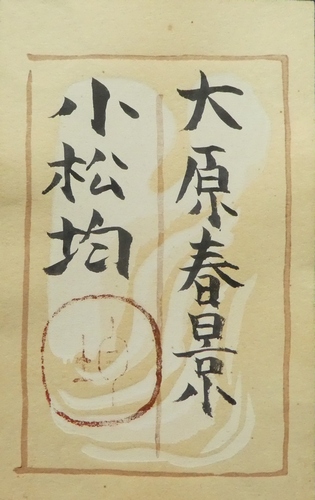 大原春景
小松均